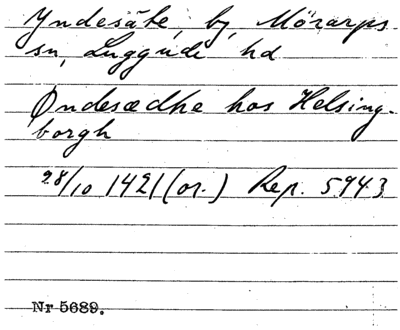 Yndesäte, by, Mörarps
sn, Luggude hd
Ondesædhe hos Helsing-
borgh
28/10 1421 (or.) Rep. 5943
Nr 5689.